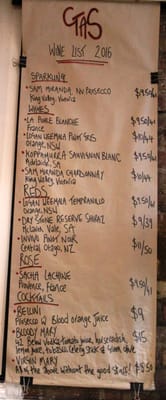 GTAS
WINE LIST 2016
SPARKLING
• SAM MIRANDA, NV PROSECCO
King Valley, Victoria
WHITES
• LA PORTE BLANCHE
France
• LOGAN WEEMALA PINOT GRIS $10/44
Orange, NSW
• KOPPAMURRA SAUVIGNON BLANC
Adelaide, SA
• SAM MIRANDA CHARDONNAY $10/44
King Valley, Victoria
REDS
• LOGAN WEEMALA TEMPRANILLO
Orange, NSW
• DRY STONE RESERVE SHIRAZ $9/39
McLaren Vale, SA
• INVIVO PINOT NOIR $11/50
Central Otago, NZ
ROSE
• SACHA LICHINE
Provence, France
COCKTAILS
• BELLINI $9
Prosecco & Blood orange juice
• BLOODY MARY $15
42 Below vodka, tomato juice, horseradish,
lemon juice, tobasco, celery stick & olive
• VIRGIN MARY
All of the above without the good stuff!